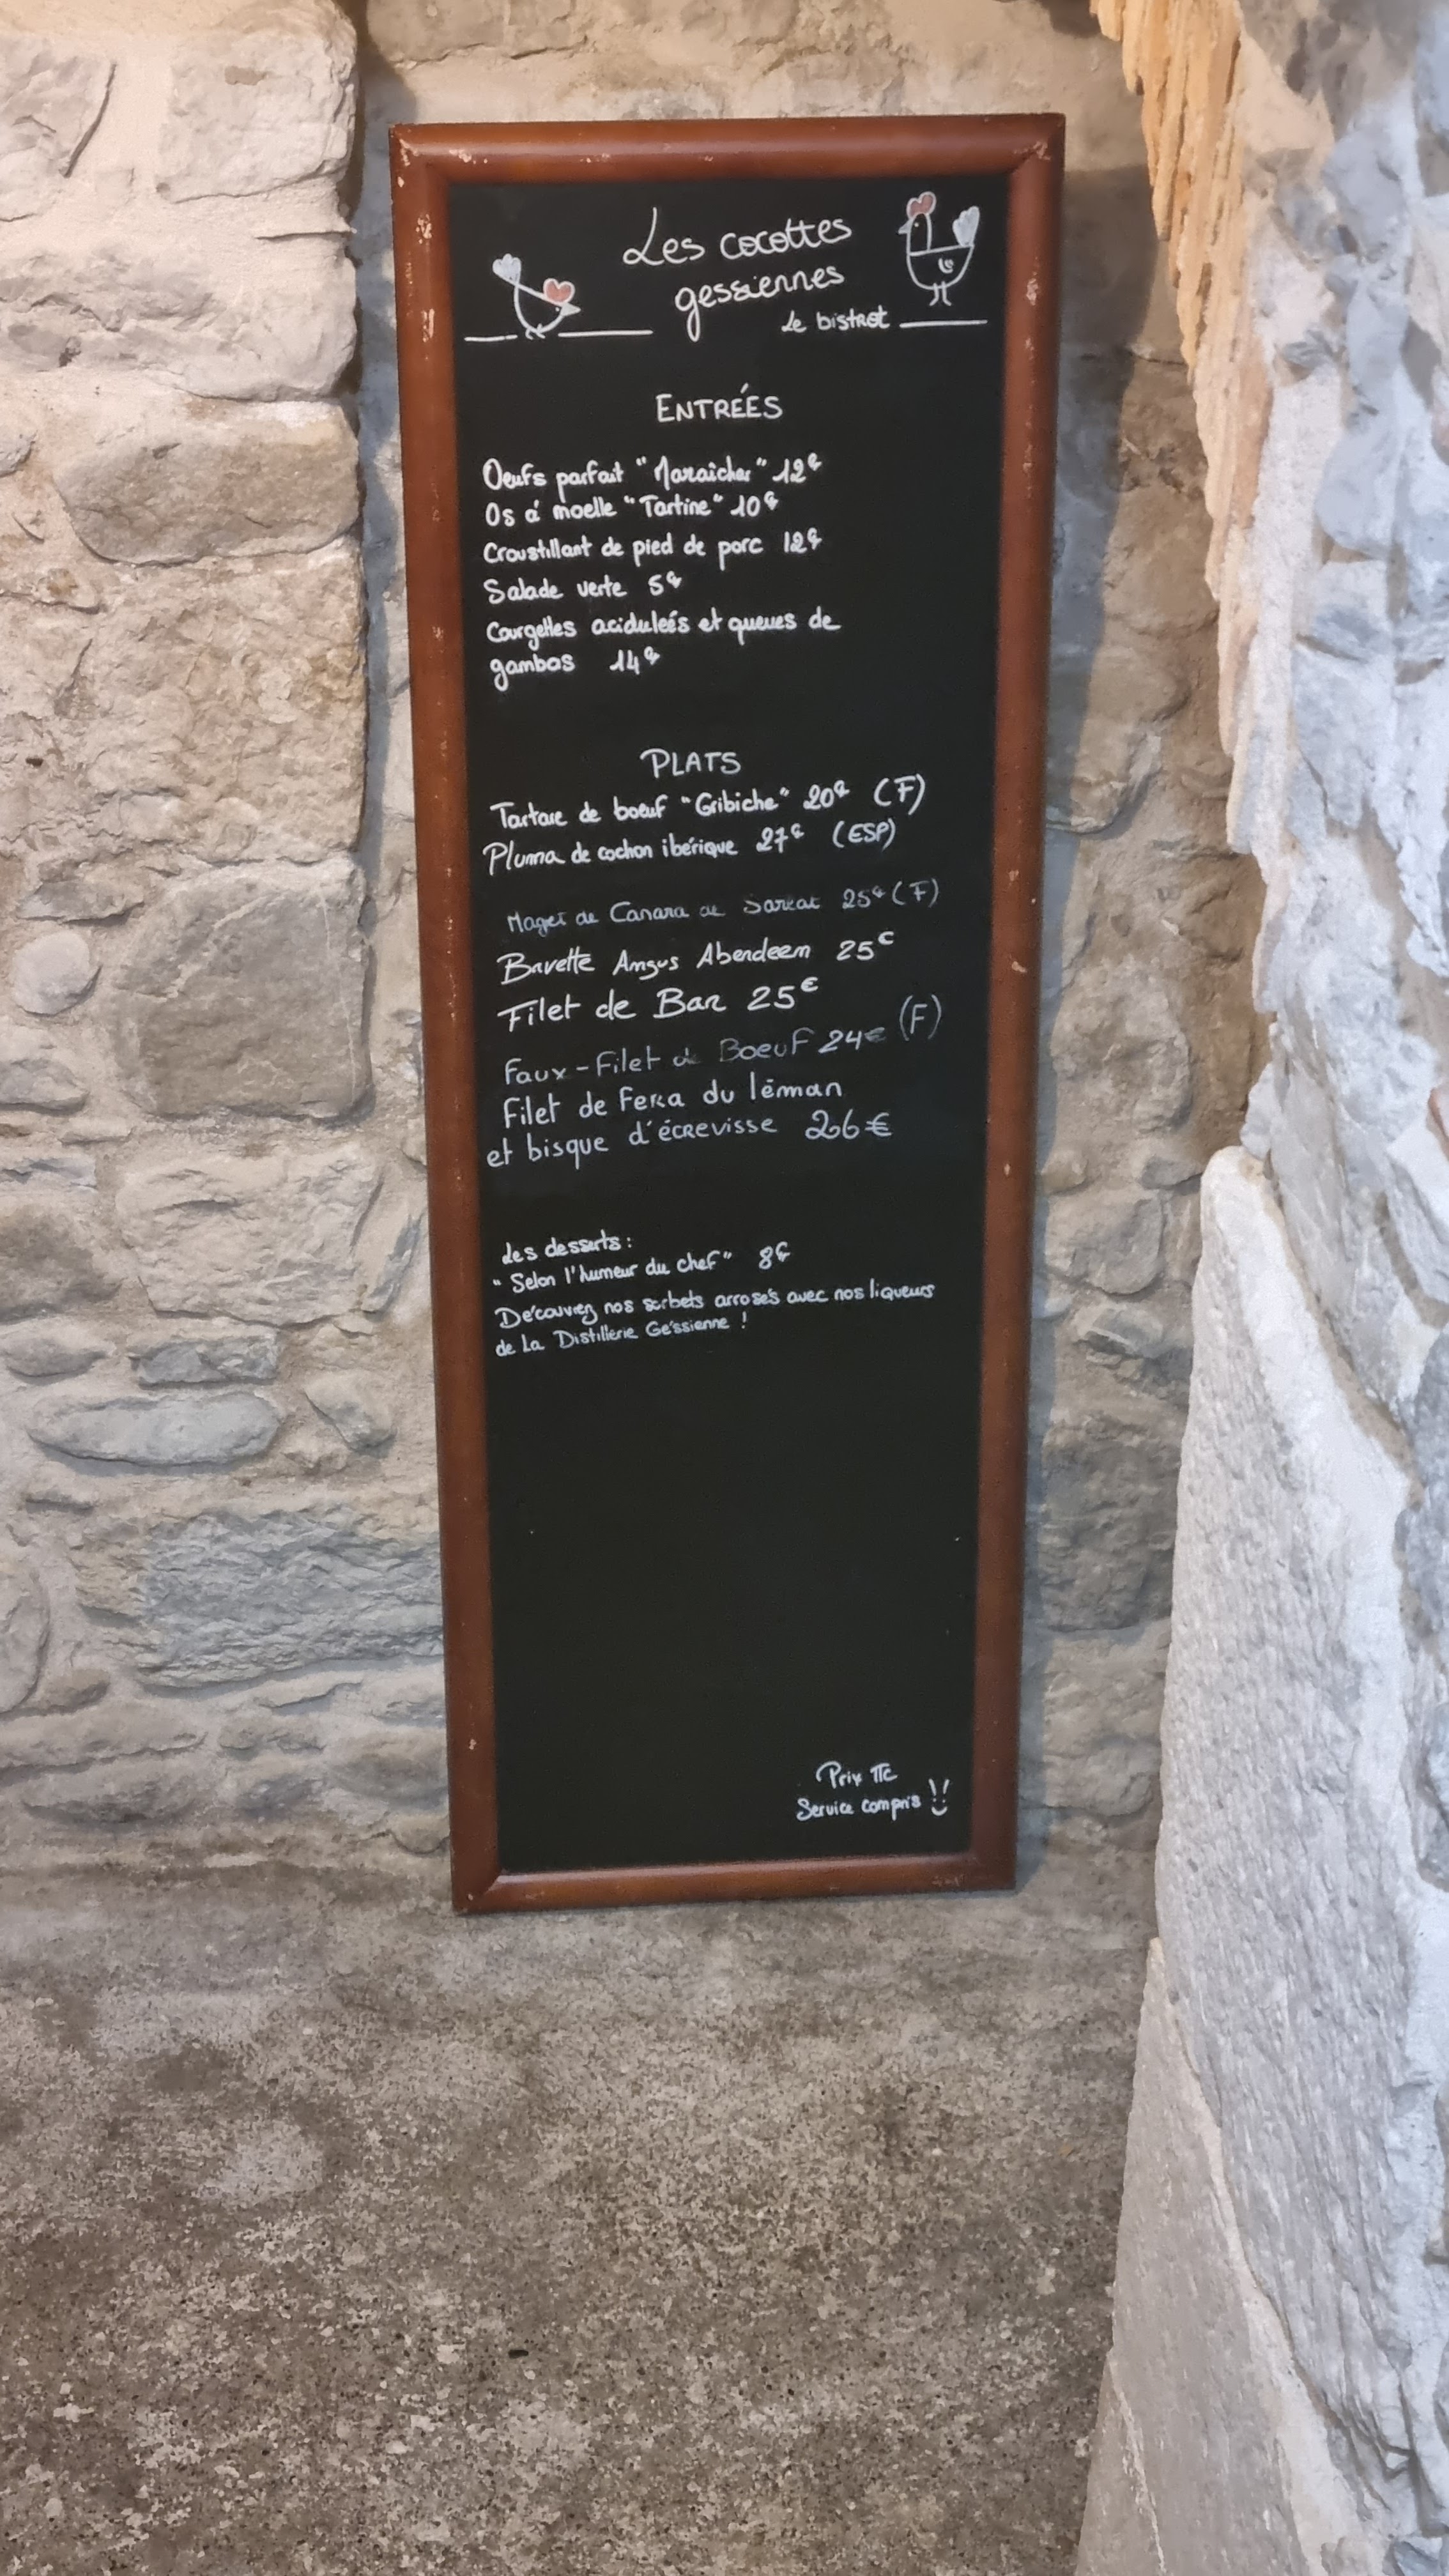 Les cocottes
gessiennes
Le bistrot
ENTRÉES
Oeufs parfait "Maraicher" 12€
Os à moelle "Tartine" 10€
Croustillant de pied de porc 12€
Salade verte 5€
Courgettes aciduleés et queues de
gambas 14€
PLATS
Tartare de boeuf "Gribiche" 20€ (F)
Pluma de cochon ibérique 27€ (ESP)
Magret de Canard de Sarlat 25€ (F)
Bavette Angus Aberdeem 25€
Filet de Bar 25€
Faux-Filet de Boeuf 24€ (F)
Filet de Fera du léman
et bisque d'écrevisse 26€
Les desserts :
"Selon l'humeur du chef" 8€
Découvrez nos sorbets arrosés avec nos liqueurs
de La Distillerie Gessienne !
Prix TTC
Service compris !!